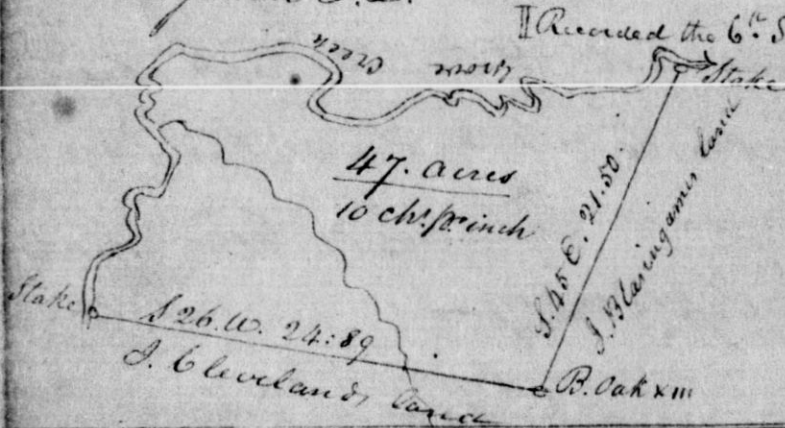 Recorded the 6th S
Creek
Stake
47. acres
10 chs pr inch
S. 45 E. 21.50.
J. Blasingames land
Stake
S 26. W. 24:89
J. Clevelands land
B. Oak x III